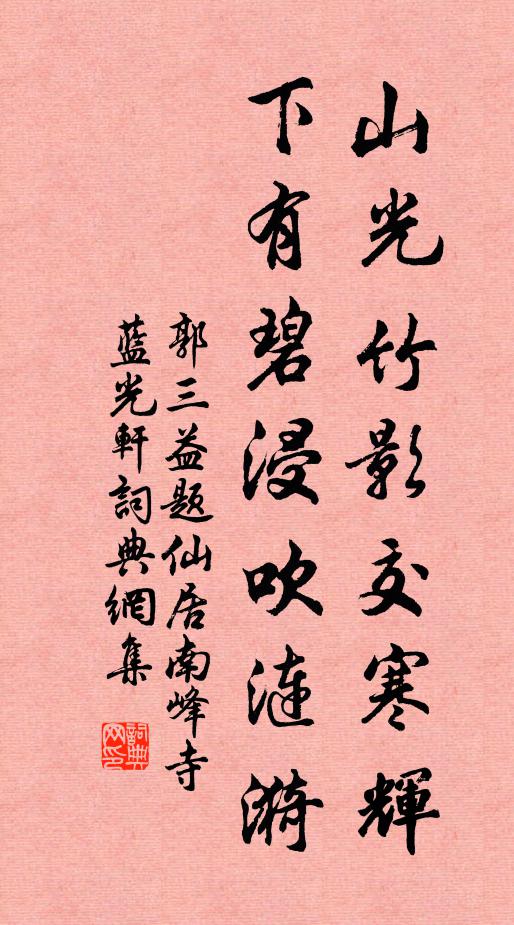 山光竹影交寒輝
下有碧浸吹漣漪
郭三益題仙居南峰寺
藍光軒詞典網集
詞典网印